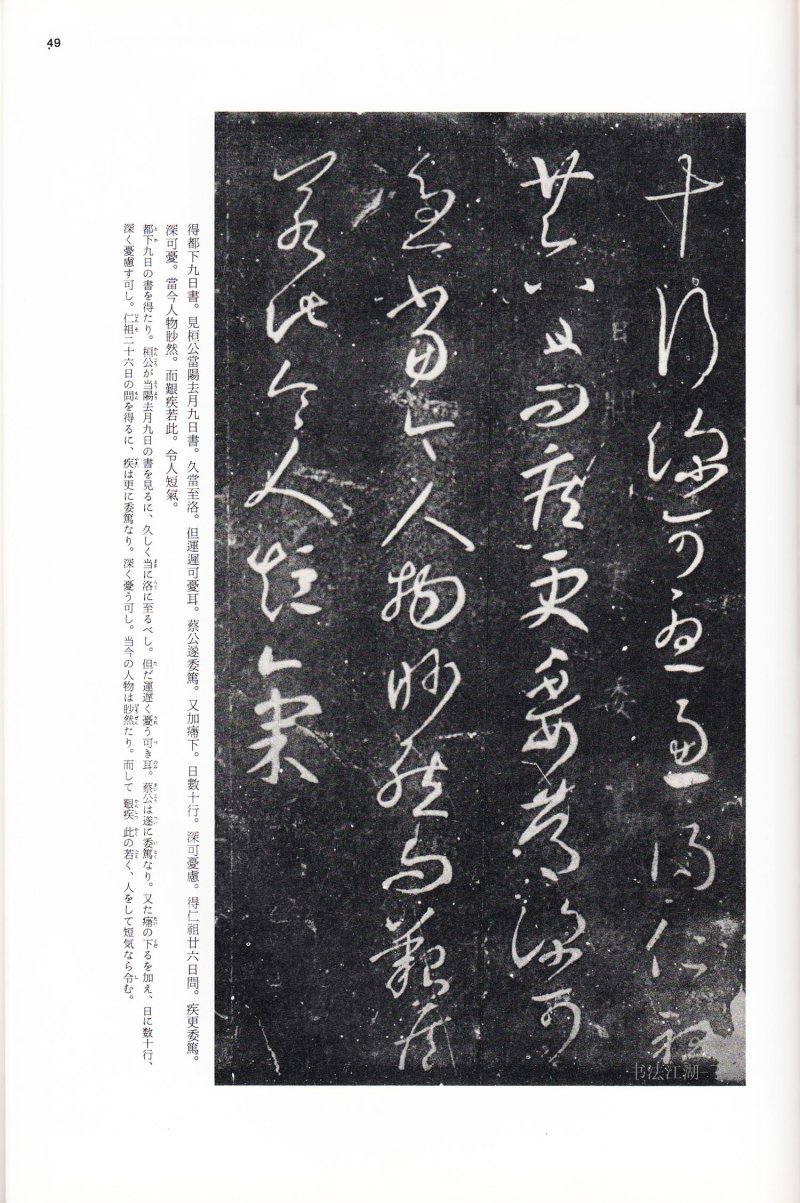 49
十行深可憂慮得仁祖
廿六日問疾更委篤深可
憂當今人物眇然而艱疾
若此令人短氣
书法江湖
得都下九日書。見桓公當陽去月九日書。久當至洛。但運遲可憂耳。蔡公遂委篤。又加㿃下。日數十行。深可憂慮。得仁祖廿六日問。疾更委篤。
深可憂。當今人物眇然。而艱疾若此。令人短氣。
都下九日の書を得たり。桓公が当陽去月九日の書を見るに、久しく当に洛に至るべし。但だ運遅く憂う可き耳。蔡公は遂に委篤なり。又た㿃の下るを加え、日に数十行、
深く憂慮す可し。仁祖二十六日の問を得るに、疾は更に委篤なり。深く憂う可し。当今の人物は眇然たり。而して艱疾此の若く、人をして短気なら令む。